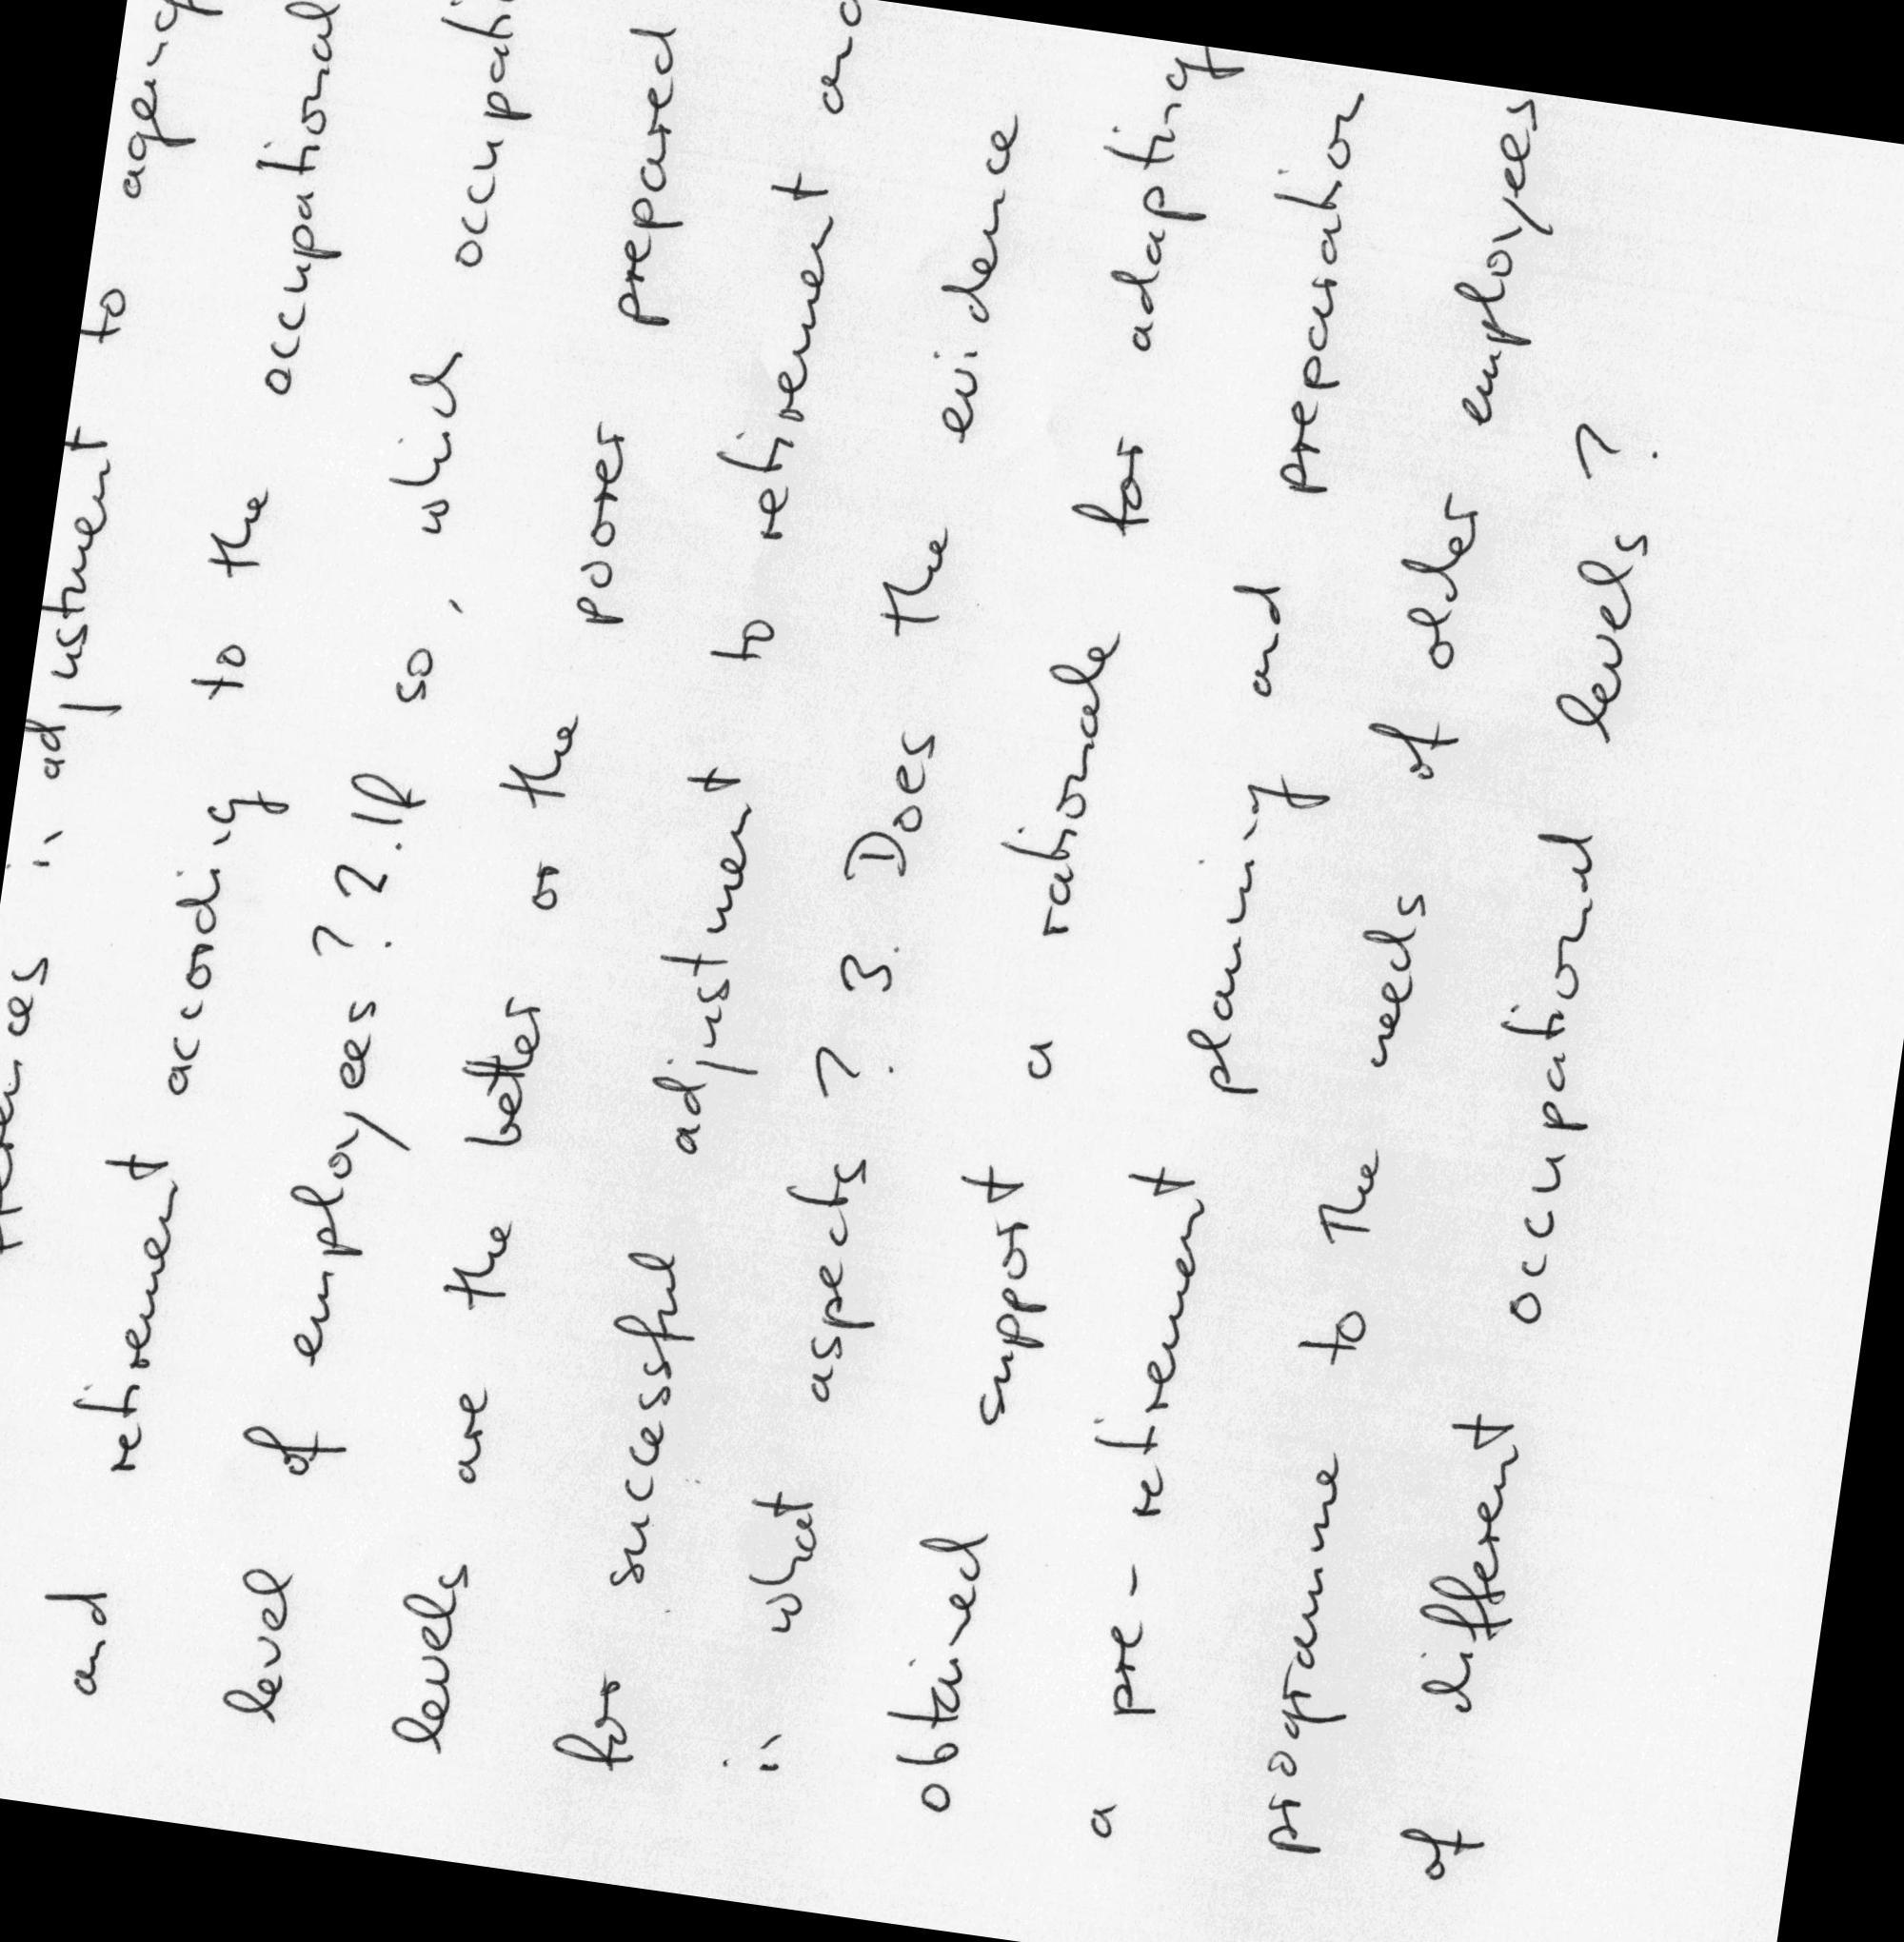 in adjustment to ageing
and retirement according to the occupational
level of employees? 2. If so, which
levels are the better or the poorer prepared
for successful adjustment to retirement and
in what aspects? 3. Does the evidence
obtained support a rationale for adapting
a pre-retirement planning and preparation
programme to the needs of older employees
of different occupational levels?